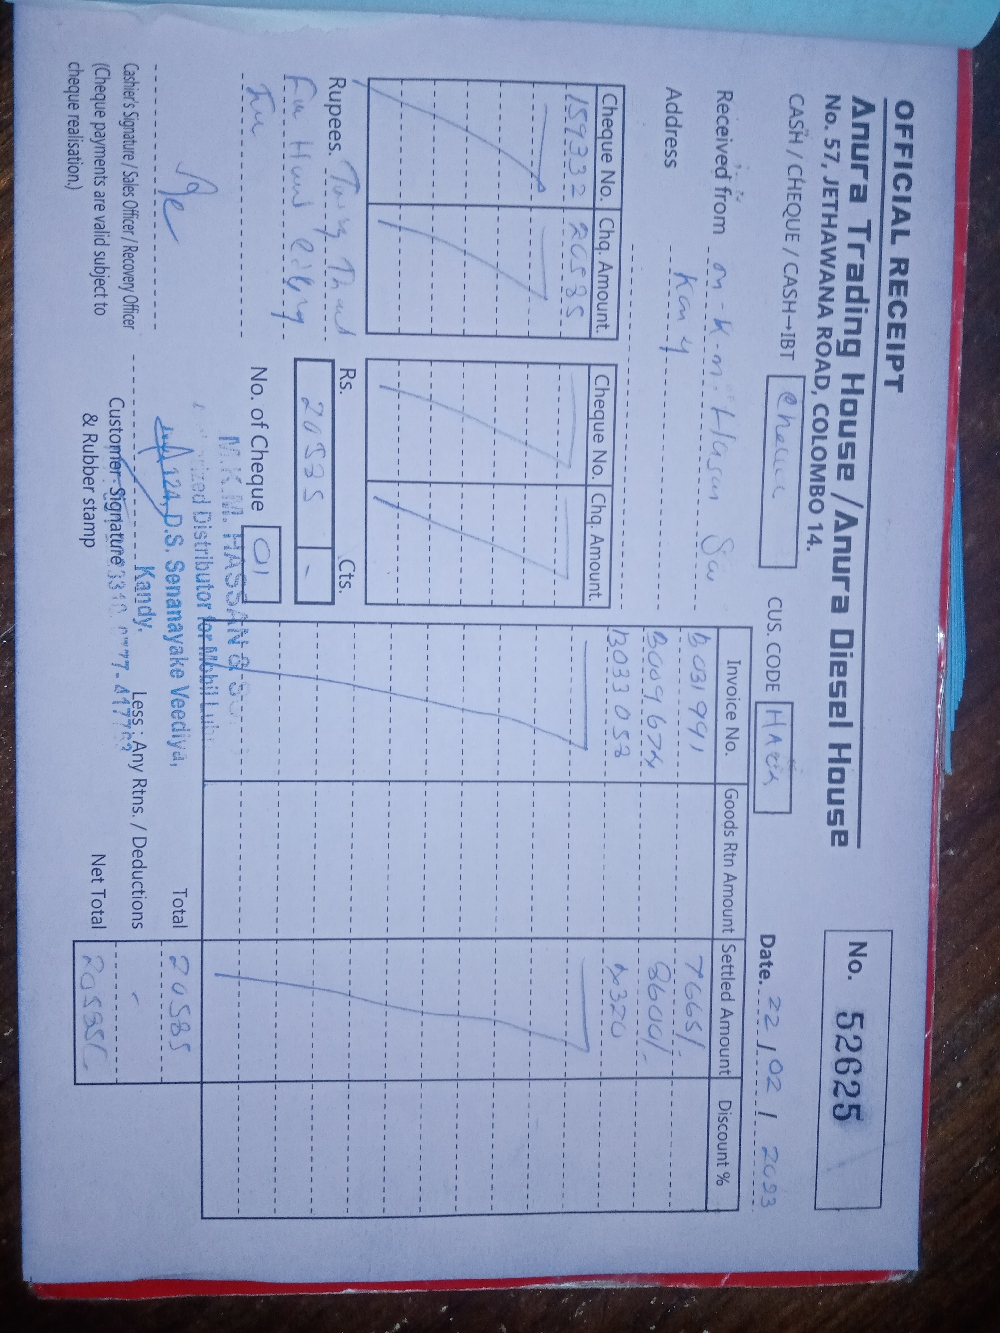 OFFICIAL RECEIPT
Anura Trading House / Anura Diesel House
No. 57, JETHAWANA ROAD, COLOMBO 14.
No. 52625
CASH / CHEQUE / CASH→IBT Cheque
CUS. CODE
Date. 22 / 02 / 2023
Received from M.K.M. Hasan
Address Kandy
Cheque No. Chq. Amount.
159332 20585
Cheque No. Chq. Amount.
Invoice No. Goods Rtn Amount Settled Amount Discount %
B031991 7665/-
B009674 8600/-
B033053 4320
Rupees.
Rs. Cts.
20585 -
No. of Cheque 01
M.K.M. HASSAN &
Distributor for Mobil
124, D.S. Senanayake Veediya,
Kandy.
Total 20585
Less : Any Rtns. / Deductions -
Net Total 20585/-
Cashier's Signature / Sales Officer / Recovery Officer
(Cheque payments are valid subject to
cheque realisation.)
Customer Signature
& Rubber stamp